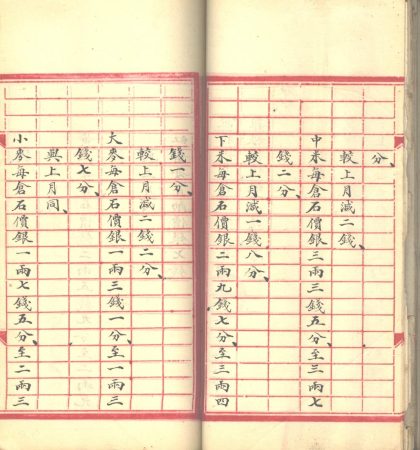 分、
較上月減二錢、
中米每倉石價銀三兩三錢五分、至三兩七
錢二分、
較上月減一錢八分、
下米每倉石價銀二兩九錢七分、至三兩四
錢一分、
較上月減二錢二分、
大麥每倉石價銀一兩三錢一分至一兩三
錢七分、
與上月同、
小麥每倉石價銀一兩七錢五分、至二兩三